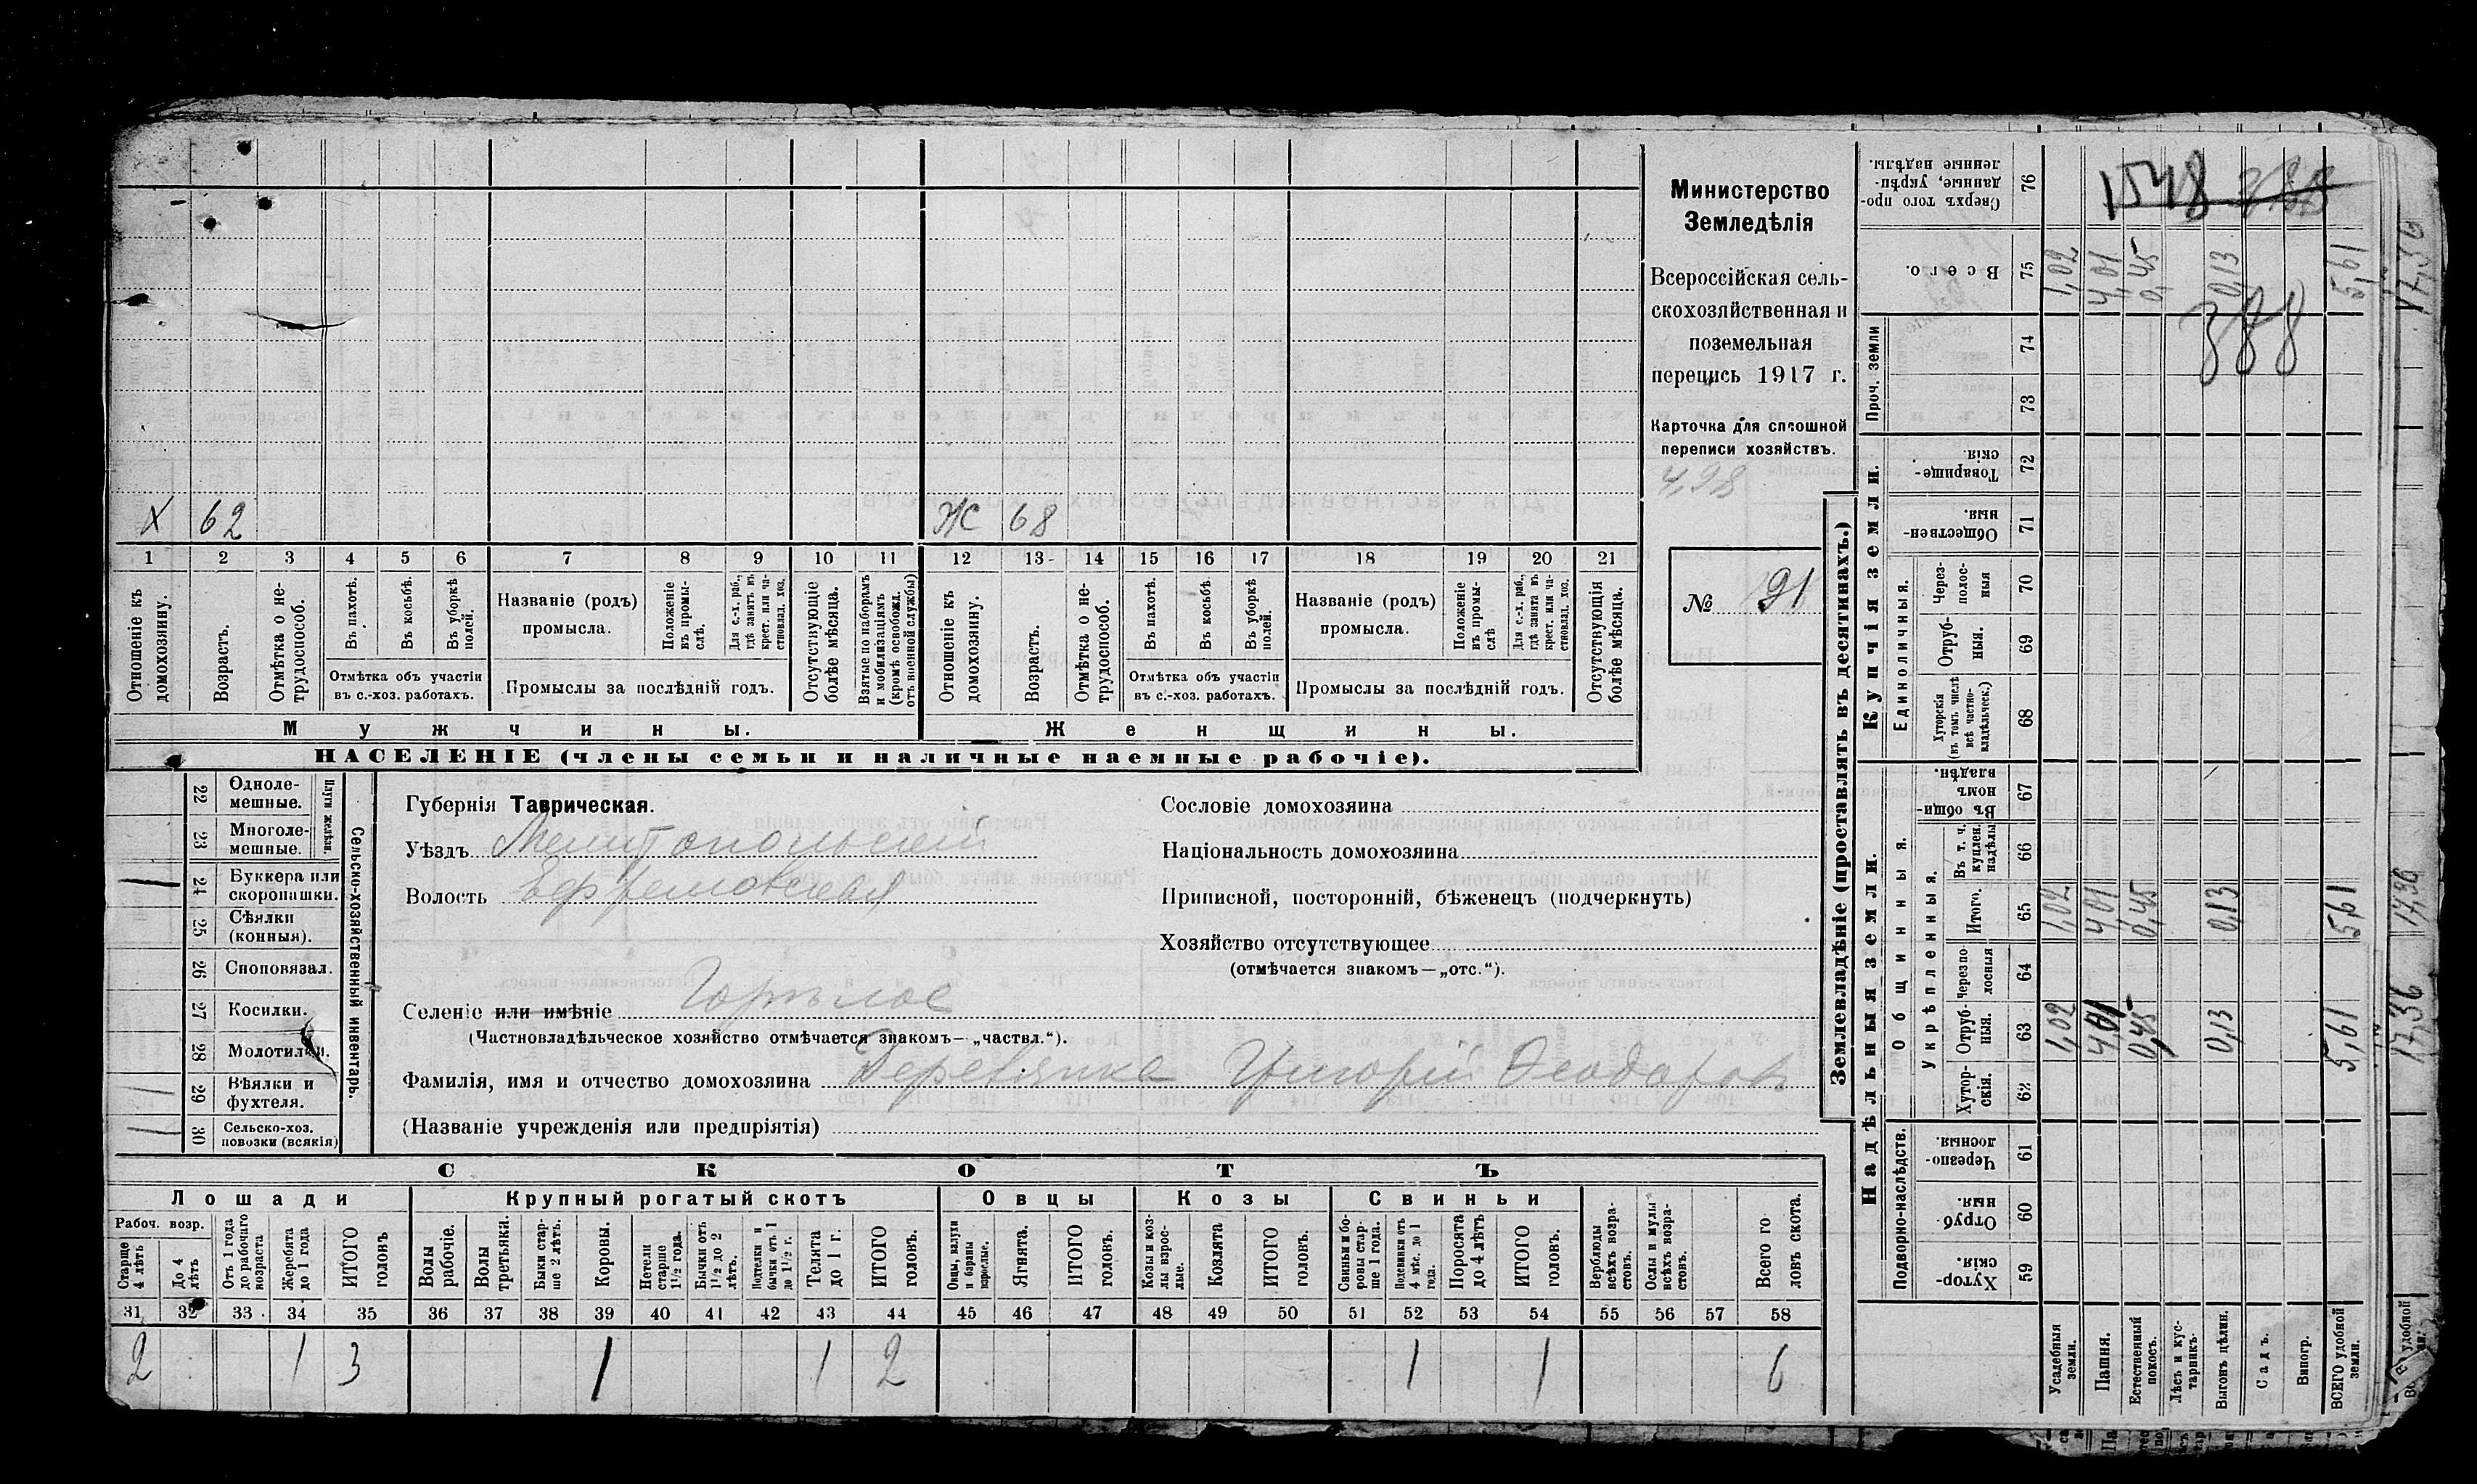 Министерство
Земледѣлія
Всероссійская сель-
скохозяйственная и
поземельная
перепись 1917 г.
Карточка для сплошной
переписи хозяйствъ.
4,98
№ 91
Х 62
Ж 68
1 2 3 4 5 6 7 8 9 10 11 12 13 14 15 16 17 18 19 20 21
Отношеніе къ домохозяину.
Возрастъ.
Отмѣтка о не-
трудоспособ.
Въ пахотѣ.
Въ косьбѣ.
Въ уборкѣ полей.
Отмѣтка объ участіи
въ с.-хоз. работахъ.
Названіе (родъ)
промысла.
Положеніе
въ промы-
слѣ.
Для с.-х. раб.,
гдѣ занятъ въ
крест. или ча-
стновлад. хоз.
Промыслы за послѣдній годъ.
Отсутствующіе
болѣе мѣсяца.
Взятые по наборамъ
и мобилизаціямъ
(кромѣ освобожд.
отъ военной службы)
Отношеніе къ
домохозяину.
Возрастъ.
Отмѣтка о не-
трудоспособ.
Въ пахотѣ.
Въ косьбѣ.
Въ уборкѣ
полей.
Отмѣтка объ участіи
въ с.-хоз. работахъ.
Названіе (родъ)
промысла.
Положеніе
въ промы-
слѣ
Для с.-х. раб.,
гдѣ занята въ
крест. или ча-
стновлад. хоз.
Промыслы за послѣдній годъ.
Отсутствующія
болѣе мѣсяца.
Мужчины.
Женщины.
НАСЕЛЕНІЕ (члены семьи и наличные наемные рабочіе).
22 Одноле-
мешные.
23 Многоле-
мешные.
Плуги желѣзн.
24 Буккера или
скоропашки.
25 Сѣялки
(конныя).
26 Сноповязал.
27 Косилки.
28 Молотилки.
29 Вѣялки и
фухтеля.
30 Сельско-хоз.
повозки (всякія)
Сельско-хозяйственный инвентарь.
Губернія Таврическая.
Уѣздъ Мелитопольскій
Волость Ефремовская
Сословіе домохозяина
Національность домохозяина
Приписной, посторонній, бѣженецъ (подчеркнуть)
Хозяйство отсутствующее
(отмѣчается знакомъ—„отс.“).
Селеніе или имѣніе Горѣлое
(Частновладѣльческое хозяйство отмѣчается знакомъ—„частвл.“).
Фамилія, имя и отчество домохозяина Деревянка Григорій Ѳеодоров
(Названіе учрежденія или предпріятія)
СКОТЪ
Лошади
Крупный рогатый скотъ
Овцы
Козы
Свиньи
Рабоч. возр.
Старше
4 лѣтъ
До 4
лѣтъ
Отъ 1 года
до рабочаго
возраста
Жеребята
до 1 года
ИТОГО
головъ
Волы
рабочіе.
Волы
третьяки.
Быки стар-
ше 2 лѣтъ.
Коровы.
Нетели
старше
1½ года.
Бычки отъ
1½ до 2
лѣтъ.
Подтелки и
бычки отъ 1
до 1½ г.
Телята
до 1 г.
ИТОГО
головъ.
Овцы, валухи
и бараны
взрослые.
Ягнята.
ИТОГО
головъ.
Козы и коз-
лы взрос-
лые.
Козлята
ИТОГО
головъ.
Свиньи и бо-
ровы стар-
ше 1 года.
Подсвинки отъ
4 мѣс. до 1
года.
Поросята
до 4 лѣтъ
ИТОГО
головъ.
Верблюды
всѣхъ возра-
стовъ.
Ослы и мулы
всѣхъ возра-
стовъ.
Всего го
ловъ скота.
31 32 33 34 35 36 37 38 39 40 41 42 43 44 45 46 47 48 49 50 51 52 53 54 55 56 57 58
2 1 3 1 1 2 1 1 6
Землевладѣніе (проставлять въ десятинахъ.)
Надѣльныя земли.
Купчія земли.
Проч. земли
Подворно-наслѣдств.
Общинныя.
Укрѣпленныя.
Единоличныя.
Сверхъ того про-
данные, укрѣп-
ленные надѣлы. 76
Всего. 75
74
73
Товарище-
скія 72
Обществен-
ныя. 71
Через-
полос-
ныя 70
Отруб-
ныя. 69
Хуторскія
(въ томъ числѣ
всѣ частно-
владѣльческ.) 68
Въ общи-
номъ
владѣн. 67
Въ т. ч.
куплен.
надѣлы 66
Итого. 65
Черезпо
лосныя 64
Отруб-
ныя. 63
Хутор-
скія. 62
Черезпо-
лосныя. 61
Отруб
ныя. 60
Хутор-
скія. 59
Усадебныя
земли.
Пашня.
Естественный
покосъ.
Лѣсъ и кус-
тарникъ.
Выгонъ цѣлин.
Садъ.
Виногр.
ВСЕГО удобной
земли.
1548
388
1,02 4,01 0,45 0,13 5,61 17,36
1,02 4,01 0,45 0,13 5,61 17,36
1,02 4,01 0,45 0,13 5,61 17,36